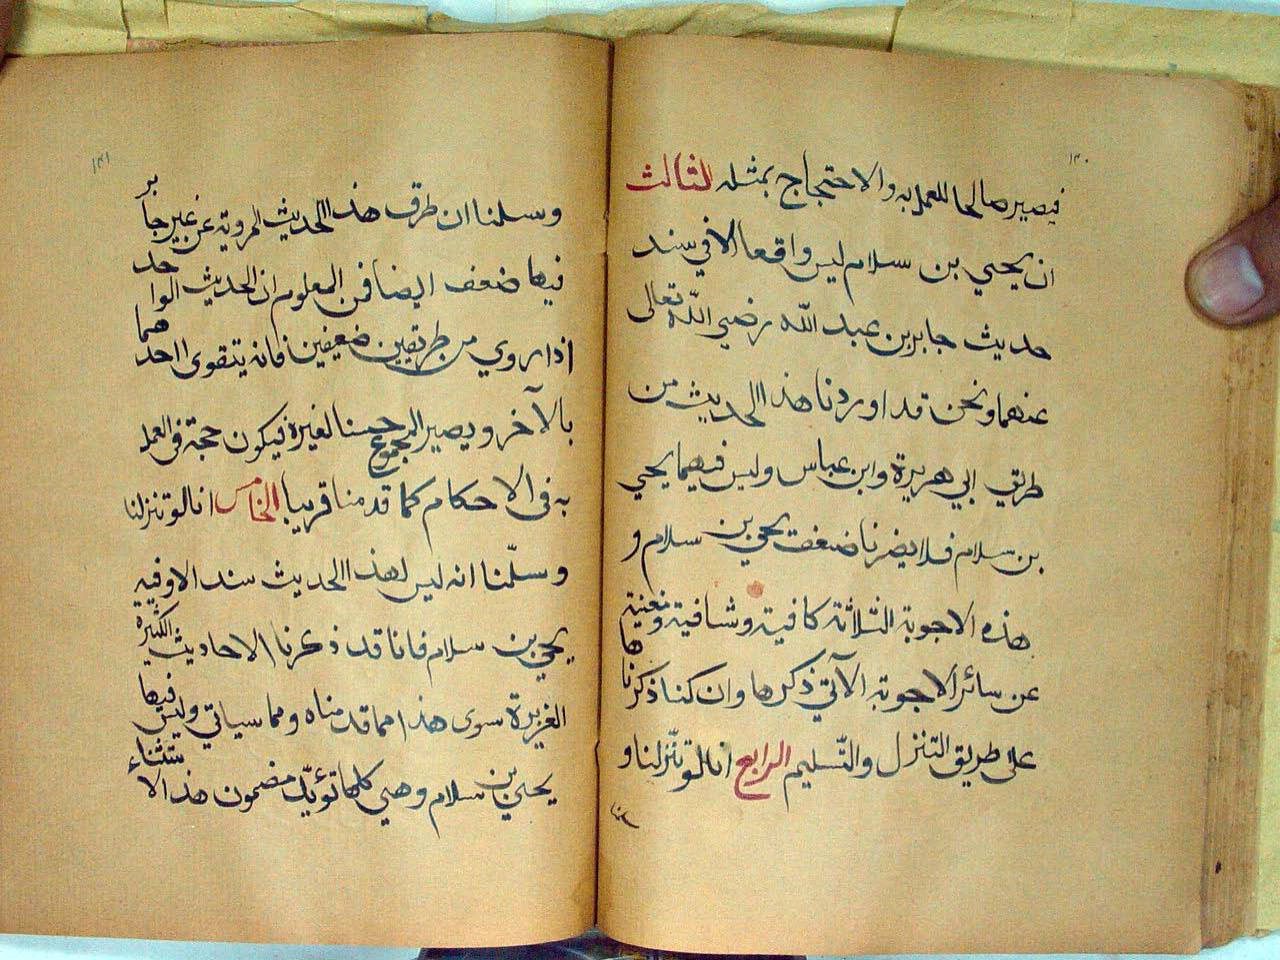 ١٤٠
فيصير صالحا للعمل به والاحتجاج بمثله الثالث
ان يحيي بن سلام ليس واقعا الا في سند
حديث جابر بن عبد الله رضي الله تعالى
عنهما ونحن قد اوردنا هذا الحديث من
طريق ابي هريرة وابن عباس وليس فيهما يحيي
بن سلام فلا يضرنا ضعف يحيي بن سلام و
هذه الاجوبة الثلاثة كافية وشافية ومغنية
عن سائر الاجوبة الآتي ذكرها وان كنا ذكرناها
على طريق التنزل والتسليم الرابع انا لو تنزلنا و
سلمنا
١٤١
وسلمنا ان طرق هذا الحديث المروية عن غير جابر
فيها ضعف ايضا فمن المعلوم ان الحديث الواحد
اذا روي من طريقين ضعيفين فانه يتقوى احدهما
بالآخر ويصير المجموع حسنا لغيره فيكون حجة في العمل
به في الاحكام كما قدمنا قريبا الخامس انا لو تنزلنا
وسلّمنا انه ليس لهذا الحديث سند الا وفيه
يحيي بن سلام فانا قد ذكرنا الاحاديث الكثيرة
الغزيرة سوى هذا مما قدمناه ومما سياتي وليس فيها
يحيي بن سلام وهي كلها تؤيّد مضمون هذا الاستثناء